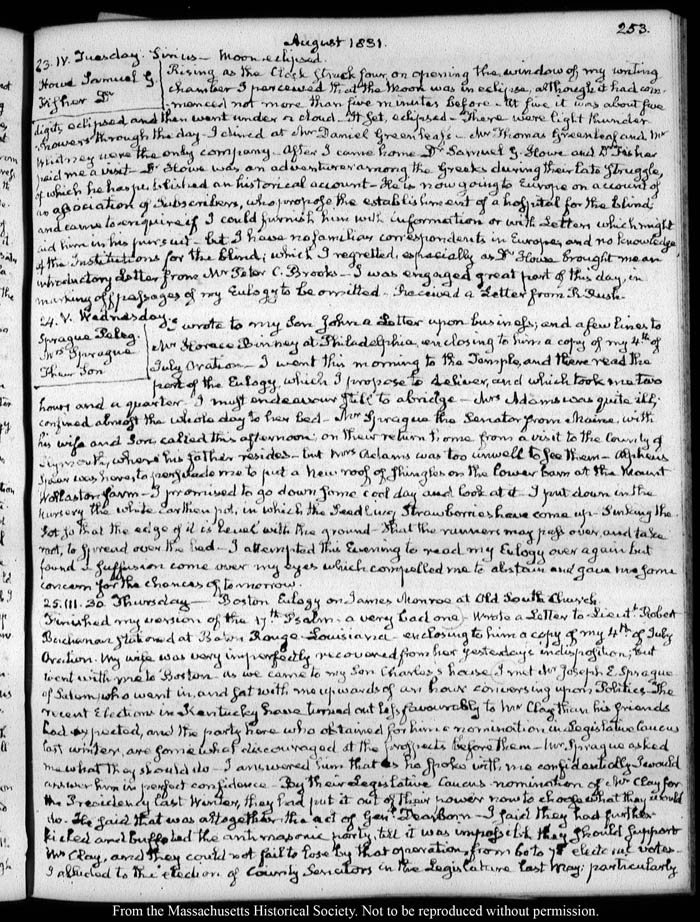 August 1831.
253.
23. IV. Tuesday. Sirius — Moon eclipsed.
Howe Samuel G.
Fisher Dr
Rising as the Clock struck four, on opening the window of my writing
chamber I perceived that the Moon was in eclipse, although it had com-
menced not more than five minutes before — At five it was about five
digits eclipsed and then went under a cloud. It set, eclipsed — There were light thunder
showers through the day. I dined at Mr Daniel Greenleaf's — Mr Thomas Greenleaf and Mr
Whitney were the only company — After I came home Dr Samuel G. Howe and Dr Fisher
paid me a visit — Dr Howe was an adventurer among the Greeks during their late struggle,
of which he has published an historical account — He is now going to Europe on account of
an association of Subscribers, who propose the establishment of a hospital for the blind;
and came to enquire if I could furnish him with information or with Letters which might
aid him in his pursuit — but I have no familiar correspondents in Europe, and no knowledge
of the Institutions for the blind; which I regretted, especially as Dr Howe brought me an
introductory Letter from Mr Peter C. Brooks — I was engaged great part of this day, in
marking off passages of my Eulogy to be omitted — Received a Letter from R. Rush.
24. V. Wednesday.
Sprague Peleg.
Mrs Sprague
Their Son
I wrote to my Son John a Letter upon business; and a few lines to
Mr Horace Binney at Philadelphia, enclosing to him a copy of my 4th of
July Oration — I went this morning to the Temple, and there read the
part of the Eulogy, which I propose to deliver, and which took me two
hours and a quarter. I must endeavour still to abridge — Mrs Adams was quite ill;
confined almost the whole day to her bed — Mr Sprague the Senator from Maine, with
his wife and Son, called this afternoon; on their return home from a visit to the County of
Plymouth, where his father resides — but Mrs Adams was too unwell to see them — Alpheus
Spear was here, to persuade me to put a new roof of shingles on the lower barn at the Mount
Wollaston farm — I promised to go down some cool day and look at it — I put down in the
nursery the white earthen pot, in which the Strawberries have come up — sinking the
Pot so that the edge of it is level with the ground — that the runners may pass over, and take
root, to spread over the bed — I attempted this Evening to read my Eulogy over again but
found a suffusion come over my eyes which compelled me to abstain and gave me some
concern for the chances of tomorrow.
25. III. 30. Thursday — Boston Eulogy on James Monroe at Old South Church.
Finished my version of the 17th Psalm — a very bad one — Wrote a Letter to Lieut Robert
Buchanan stationed at Baton Rouge — Louisiana — enclosing to him a copy of my 4th of July
Oration. My wife was very imperfectly recovered from her yesterday's indisposition; but
went with me to Boston — as we came to my Son Charles's house I met Mr Joseph E. Sprague
of Salem, who went in, and sat with me upwards of an hour conversing upon Politics — The
recent Elections in Kentucky have turned out less favourably to Mr Clay than his friends
had expected, and the party here who obtained for him a nomination in Legislative Caucus
last winter, are somewhat discouraged at the prospects before them — Mr Sprague asked
me what they should do — I answered him that as he spoke with me confidentially I would
answer him in perfect confidence — By their Legislative Caucus nomination of Mr Clay for
the Presidency last Winter, they had put it out of their power now to choose what they would
do. He said that was altogether the act of Genl Dearborn — I said they had further
kicked and buffeted the antimasonic party, till it was impossible they should support
Mr Clay, and they could not fail to lose by that operation, from 60 to 75 electoral votes —
I alluded to the election of County Senators in the Legislature last May; particularly
From the Massachusetts Historical Society. Not to be reproduced without permission.